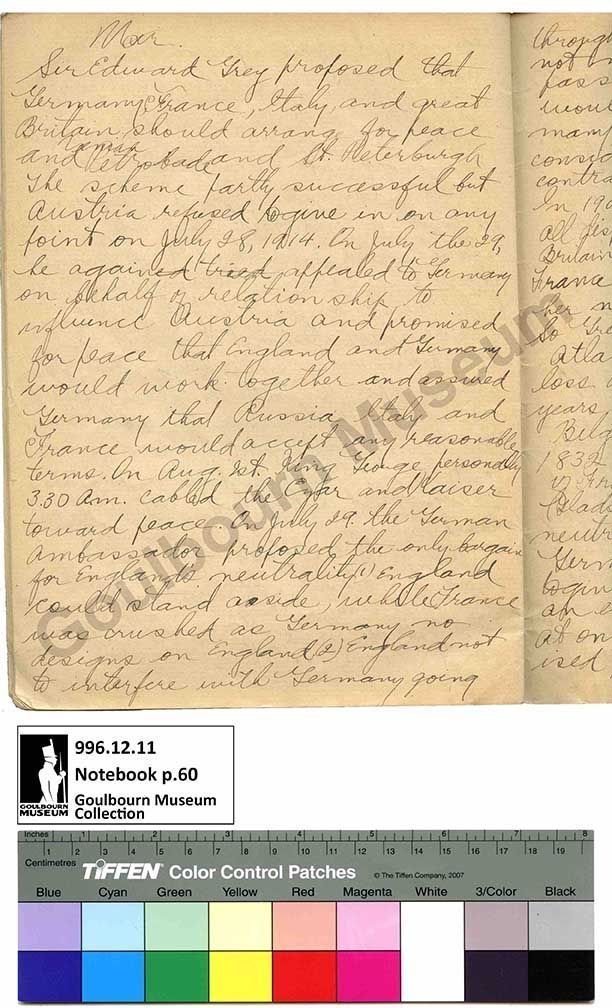 War.
Sir Edward Grey proposed that
Germany, France, Italy, and great
Britain should arrange for peace
and Petrobade and St. Peterburgh
The scheme partly successful but
Austria refused to give in on any
point on July 28, 1914. On July the 29,
he again tried appealed to Germany
on behalf of relation ship to
influence Austria and promised
for peace that England and Germany
would work together and assured
Germany that Russia Italy and
France would accept any reasonable
terms. On Aug. 1st. King George personally
3.30 Am. cabled the Czar and Kaiser
toward peace. On July 29. the German
Ambassador proposed the only bargain
for England's neutrality (1) England
could stand aside, while France
was crushed as Germany no
designs on England (2) England not
to interfere with Germany going
through
not
pass
would
contra
In 19
all
Britain
France
her
So Gre
Atla
loss
years
Belg
1832
of
neutr
Germ
login
at on
ised
Goulbourn Museum
996.12.11
Notebook p.60
Goulbourn Museum
Collection
GOULBOURN
MUSEUM
Inches 1 2 3 4 5 6 7 8
Centimetres 1 2 3 4 5 6 7 8 9 10 11 12 13 14 15 16 17 18 19
TIFFEN Color Control Patches © The Tiffen Company, 2007
Blue Cyan Green Yellow Red Magenta White 3/Color Black